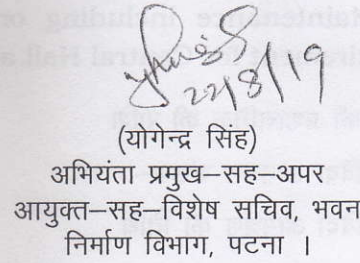 22/8/19
(योगेन्द्र सिंह)
अभियंता प्रमुख–सह–अपर
आयुक्त–सह–विशेष सचिव, भवन
निर्माण विभाग, पटना ।